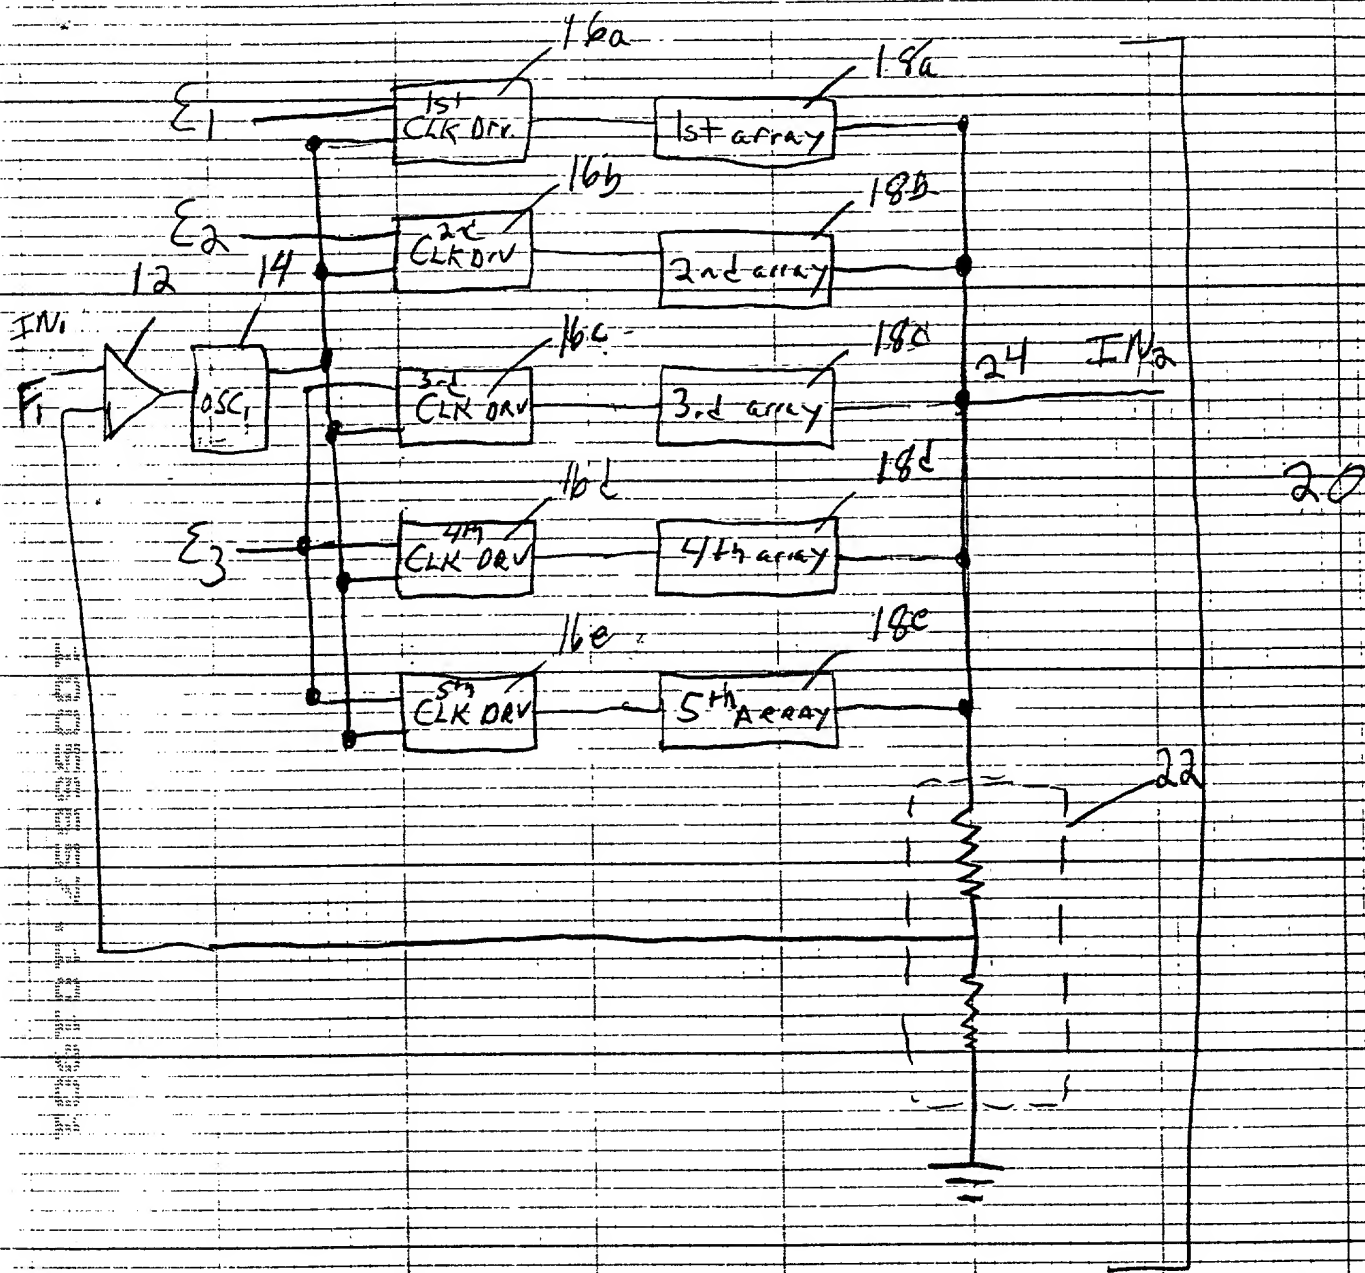 16a
18a
Ɛ1
1st
CLK Drv.
1st array
16b
18b
Ɛ2
2d
CLK Drv
2nd array
12
14
IN1
16c
18c
24
IN2
F1
OSC1
3rd
CLK DRV
3rd array
16d
18d
20
Ɛ3
4th
CLK DRV
4th array
16e
18e
5th
CLK DRV
5th ARRAY
22